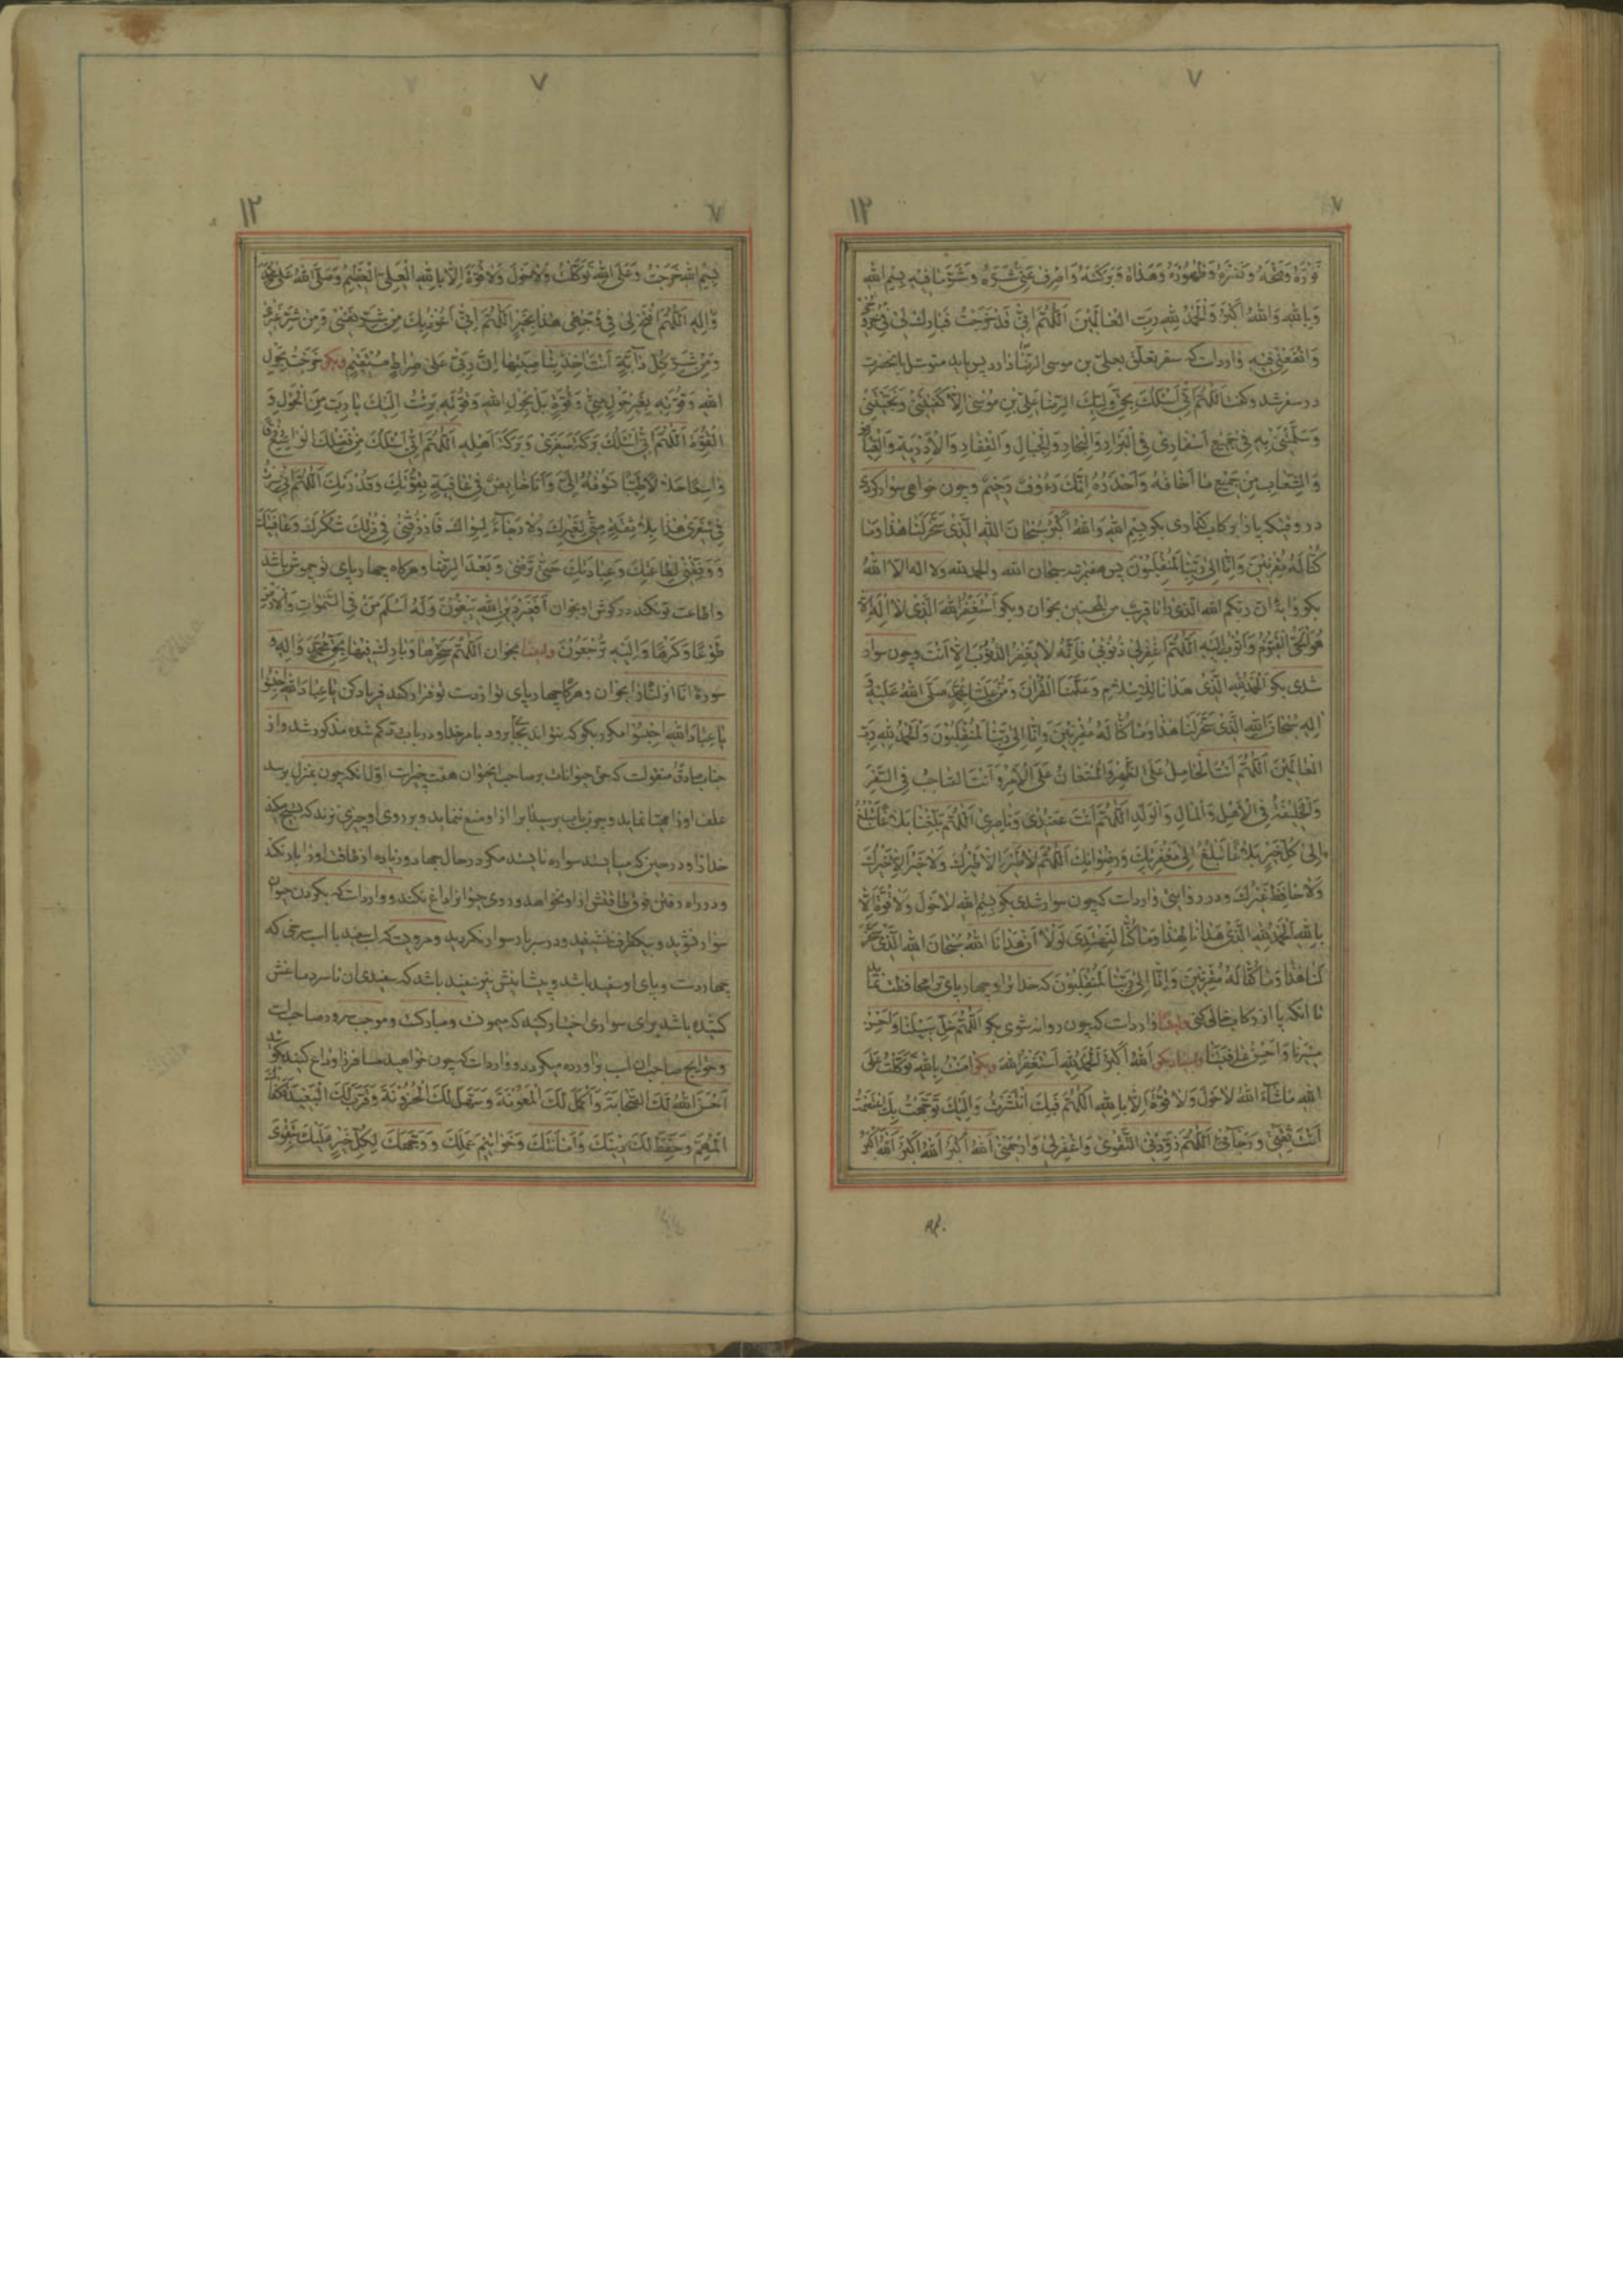 ٧
١٢
٧
نُورَهُ وَفَتْحَهُ وَنَصْرَهُ وَطَهُورَهُ وَهُدَاهُ وَبَرَكَتَهُ وَاصْرِفْ عَنِّي شَرَّهُ وَشَرَّ مَا فِيهِ بِسْمِ اللهِ
وَبِاللهِ وَاللهُ أَكْبَرُ وَالْحَمْدُ لِلّهِ رَبِّ الْعَالَمِينَ اَللّهُمَّ اِنِّي قَدْ خَرَجْتُ فَبَارِكْ لِي فِي خُرُوجِي
وَانْفَعْنِي بِهِ و وارداست که سفر تعلق بعلی بن موسی الرضا دارد پس باید متوسل بانحضرت
در سفر شد و گفت اَللّهُمَّ اِنِّي اَسْئَلُكَ بِحَقِّ وَلِيِّكَ الرِّضَا عَلِيِّ بْنِ مُوسَى اِلَّا كَفَيْتَنِي وَنَجَّيْتَنِي
وَسَلَّمْتَنِي بِهِ فِي جَمِيعِ اَسْفَارِي فِي الْبَرَارِي وَالْبِحَارِ وَالْجِبَالِ وَالْقِفَارِ وَالْاَوْدِيَةِ وَالْغِيَاضِ
وَالشِّعَابِ مِنْ جَمِيعِ مَا اَخَافُهُ وَاَحْذَرُهُ اِنَّكَ رَءُوفٌ رَحِيمٌ و چون خواهی سوار کردی
در وقتیکه پا در رکاب گذاری بگو بِسْمِ اللهِ وَاللهُ اَكْبَرُ سُبْحَانَ اللهِ الَّذِي سَخَّرَ لَنَا هَذَا وَمَا
كُنَّا لَهُ مُقْرِنِينَ وَاِنَّا اِلَى رَبِّنَا لَمُنْقَلِبُونَ پس هفت مرتبه سبحان الله والحمد لله ولا اله الا الله
بگو و ایهٔ ان ربکم الله الذی را تا قریب من المحسنین بخوان و بگو اَسْتَغْفِرُ اللهَ الَّذِي لَا اِلَهَ اِلَّا
هُوَ الْحَيُّ الْقَيُّومُ وَاَتُوبُ اِلَيْهِ اَللّهُمَّ اغْفِرْ لِي ذُنُوبِي فَاِنَّهُ لَا يَغْفِرُ الذُّنُوبَ اِلَّا اَنْتَ و چون سوار
شدی بگو اَلْحَمْدُ لِلّهِ الَّذِي هَدَانَا لِلْاِسْلَامِ وَعَلَّمَنَا الْقُرْآنَ وَمَنَّ عَلَيْنَا بِمُحَمَّدٍ صَلَّى اللهُ عَلَيْهِ وَ
آلِهِ سُبْحَانَ اللهِ الَّذِي سَخَّرَ لَنَا هَذَا وَمَا كُنَّا لَهُ مُقْرِنِينَ وَاِنَّا اِلَى رَبِّنَا لَمُنْقَلِبُونَ وَالْحَمْدُ لِلّهِ رَبِّ
الْعَالَمِينَ اَللّهُمَّ اَنْتَ الْحَامِلُ عَلَى الظَّهْرِ وَالْمُسْتَعَانُ عَلَى الْاَمْرِ وَاَنْتَ الصَّاحِبُ فِي السَّفَرِ
وَالْخَلِيفَةُ فِي الْاَهْلِ وَالْمَالِ وَالْوَلَدِ اَللّهُمَّ اَنْتَ عَضُدِي وَنَاصِرِي اَللّهُمَّ بَلِّغْنَا بَلَاغًا يَبْلُغُ
اِلَى كُلِّ خَيْرٍ بَلَاغًا يَبْلُغُ اِلَى مَغْفِرَتِكَ وَرِضْوَانِكَ اَللّهُمَّ لَا طَيْرَ اِلَّا طَيْرُكَ وَلَا خَيْرَ اِلَّا خَيْرُكَ
وَلَا حَافِظَ غَيْرُكَ و در روایتی وارداست که چون سوار شدی بگو بِسْمِ اللهِ لَا حَوْلَ وَلَا قُوَّةَ اِلَّا
بِاللهِ اَلْحَمْدُ لِلّهِ الَّذِي هَدَانَا لِهَذَا وَمَا كُنَّا لِنَهْتَدِيَ لَوْلَا اَنْ هَدَانَا اللهُ سُبْحَانَ اللهِ الَّذِي سَخَّرَ
لَنَا هَذَا وَمَا كُنَّا لَهُ مُقْرِنِينَ وَاِنَّا اِلَى رَبِّنَا لَمُنْقَلِبُونَ که خدا تو را و چهارپای ترا محافظت نماید
تا انکه پا از رکاب خالی کنی و ایضًا وارداست که چون روانه شوی بگو اَللّهُمَّ خَلِّ سَبِيلَنَا وَاَحْسِنْ
سَيْرَنَا وَاَحْسِنْ عَافِيَتَنَا و بسیار بگو اَللهُ اَكْبَرُ اَلْحَمْدُ لِلّهِ اَسْتَغْفِرُ اللهَ و بگو آمَنْتُ بِاللهِ تَوَكَّلْتُ عَلَى
اللهِ مَا شَاءَ اللهُ لَا حَوْلَ وَلَا قُوَّةَ اِلَّا بِاللهِ اَللّهُمَّ فِيكَ انْتَشَرْتُ وَاِلَيْكَ تَوَجَّهْتُ بِكَ اعْتَصَمْتُ
اَنْتَ ثِقَتِي وَرَجَائِي اَللّهُمَّ زَوِّدْنِي التَّقْوَى وَاغْفِرْ لِي وَارْحَمْنِي اَللهُ اَكْبَرُ اَللهُ اَكْبَرُ اَللهُ اَكْبَرُ
٧
١٢
بِسْمِ اللهِ خَرَجْتُ وَعَلَى اللهِ تَوَكَّلْتُ وَلَا حَوْلَ وَلَا قُوَّةَ اِلَّا بِاللهِ الْعَلِيِّ الْعَظِيمِ وَصَلَّى اللهُ عَلَى مُحَمَّدٍ
وَآلِهِ اَللّهُمَّ افْتَحْ لِي فِي وَجْهِي هَذَا بِخَيْرٍ اَللّهُمَّ اِنِّي اَعُوذُ بِكَ مِنْ شَرِّ نَفْسِي وَمِنْ شَرِّ غَيْرِي
وَمِنْ شَرِّ كُلِّ دَابَّةٍ اَنْتَ آخِذٌ بِنَاصِيَتِهَا اِنَّ رَبِّي عَلَى صِرَاطٍ مُسْتَقِيمٍ و بگو خَرَجْتُ بِحَوْلِ
اللهِ وَقُوَّتِهِ بِغَيْرِ حَوْلٍ مِنِّي وَقُوَّةٍ بَلْ بِحَوْلِ اللهِ وَقُوَّتِهِ بَرِئْتُ اِلَيْكَ يَا رَبِّ مِنَ الْحَوْلِ وَ
الْقُوَّةِ اَللّهُمَّ اِنِّي اَسْئَلُكَ بَرَكَةَ سَفَرِي وَبَرَكَةَ اَهْلِهِ اَللّهُمَّ اِنِّي اَسْئَلُكَ مِنْ فَضْلِكَ الْوَاسِعِ رِزْقًا
وَاسِعًا حَلَالًا طَيِّبًا تَسُوقُهُ اِلَيَّ وَاَنَا خَائِضٌ فِي عَافِيَةٍ بِقُوَّتِكَ وَقُدْرَتِكَ اَللّهُمَّ اِنِّي سِرْتُ
فِي سَفَرِي هَذَا بِلَا ثِقَةٍ مِنِّي لِغَيْرِكَ وَلَا رَجَاءً لِسِوَاكَ فَارْزُقْنِي فِي ذَلِكَ شُكْرَكَ وَعَافِيَتَكَ
وَوَفِّقْنِي لِطَاعَتِكَ وَعِبَادَتِكَ حَتَّى تَرْضَى وَبَعْدَ الرِّضَا و هرگاه چهارپای تو چموش باشد
و اطاعت تو نکند در گوش او بخوان اَفَغَيْرَ دِينِ اللهِ يَبْغُونَ وَلَهُ اَسْلَمَ مَنْ فِي السَّمَوَاتِ وَالْاَرْضِ
طَوْعًا وَكَرْهًا وَاِلَيْهِ تُرْجَعُونَ و ایضًا بخوان اَللّهُمَّ سَخِّرْهَا وَبَارِكْ فِيهَا بِحَقِّ مُحَمَّدٍ وَآلِهِ و
سورهٔ انا انزلناه را بخوان و هرگاه چهارپای تو از دست تو فرار کند فریاد کن یا عِبَادَ اللهِ احْبِسُوا
یا عِبَادَ اللهِ احْبِسُوا مکرر بگو که نتواند بجا برود بامر خدا و در باب کم شده مذکور شد و از
جناب صادق منقولست که حق حیوانات بر صاحب انحیوان هفت چیز است اول انکه چون بمنزل برسد
علف او را مهیا نماید و چون باب برسد انرا از او منع ننماید و بر روی او چیزی نزند که تسبیح میکند
خدا را و در حین که میایستد سواره نایستد مگر در حال جهاد و زیاده از طاقت او را بار نکند
و در راه رفتن فوق طاقتش از او نخواهد و روی حیوانرا داغ نکند و وارداست که بگردن حیوان
سوار نشوید و بیکطرف ننشینید و در سر بار سوار نگردید و مرویست که اسب سفید یا اسب سرخی که
چهار دست و پای او سفید باشد و پیشانیش نیز سفید باشد که سفیدی ان تا سر دماغش
کشیده باشد برای سواری اختیار کنید که میمونت و مبارکست و موجب سرور صاحب است
و حوایج صاحب ان اسب براورده میگردد و وارداست که چون خواهید مسافر را وداع کنید بگوئید
اَحْسَنَ اللهُ لَكَ الصَّحَابَةَ وَاَكْمَلَ لَكَ الْمَعُونَةَ وَسَهَّلَ لَكَ الْحُزُونَةَ وَقَرَّبَ لَكَ الْبَعِيدَ وَكَفَاكَ
الْمُهِمَّ وَحَفِظَ لَكَ دِينَكَ وَاَمَانَتَكَ وَخَوَاتِيمَ عَمَلِكَ وَوَجَّهَكَ لِكُلِّ خَيْرٍ عَلَيْكَ بِتَقْوَى